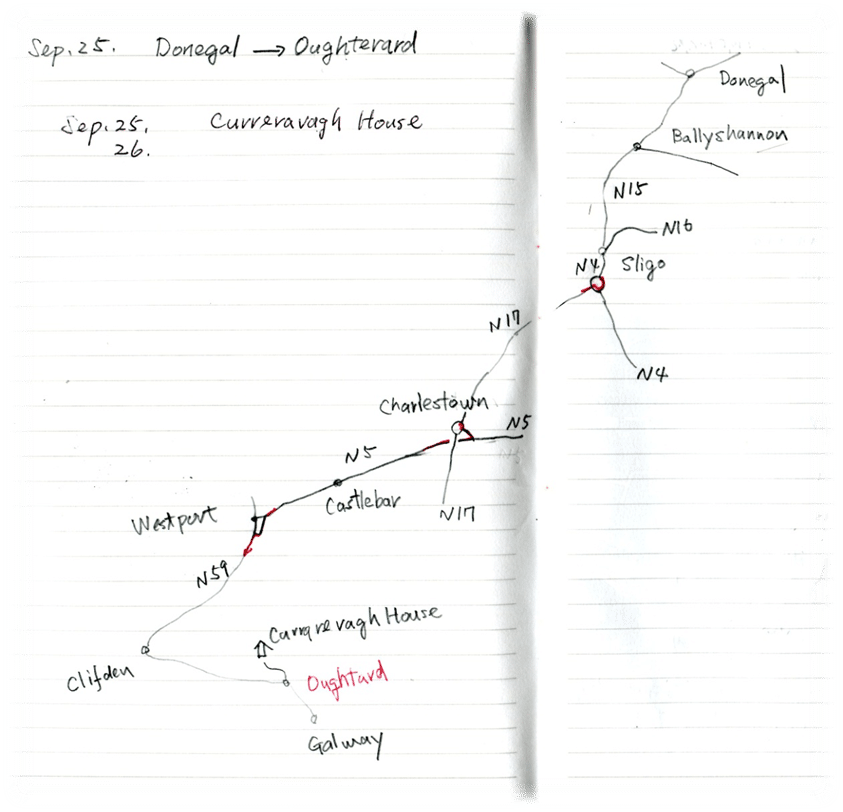 Sep. 25. Donegal → Oughterard
Sep. 25. Curreravagh House
26.
Donegal
Ballyshannon
N15
N16
N4 Sligo
N17
N4
Charlestown
N5
N5
Castlebar
N17
Westport
N59
Currarevagh House
Clifden
Oughtard
Galway